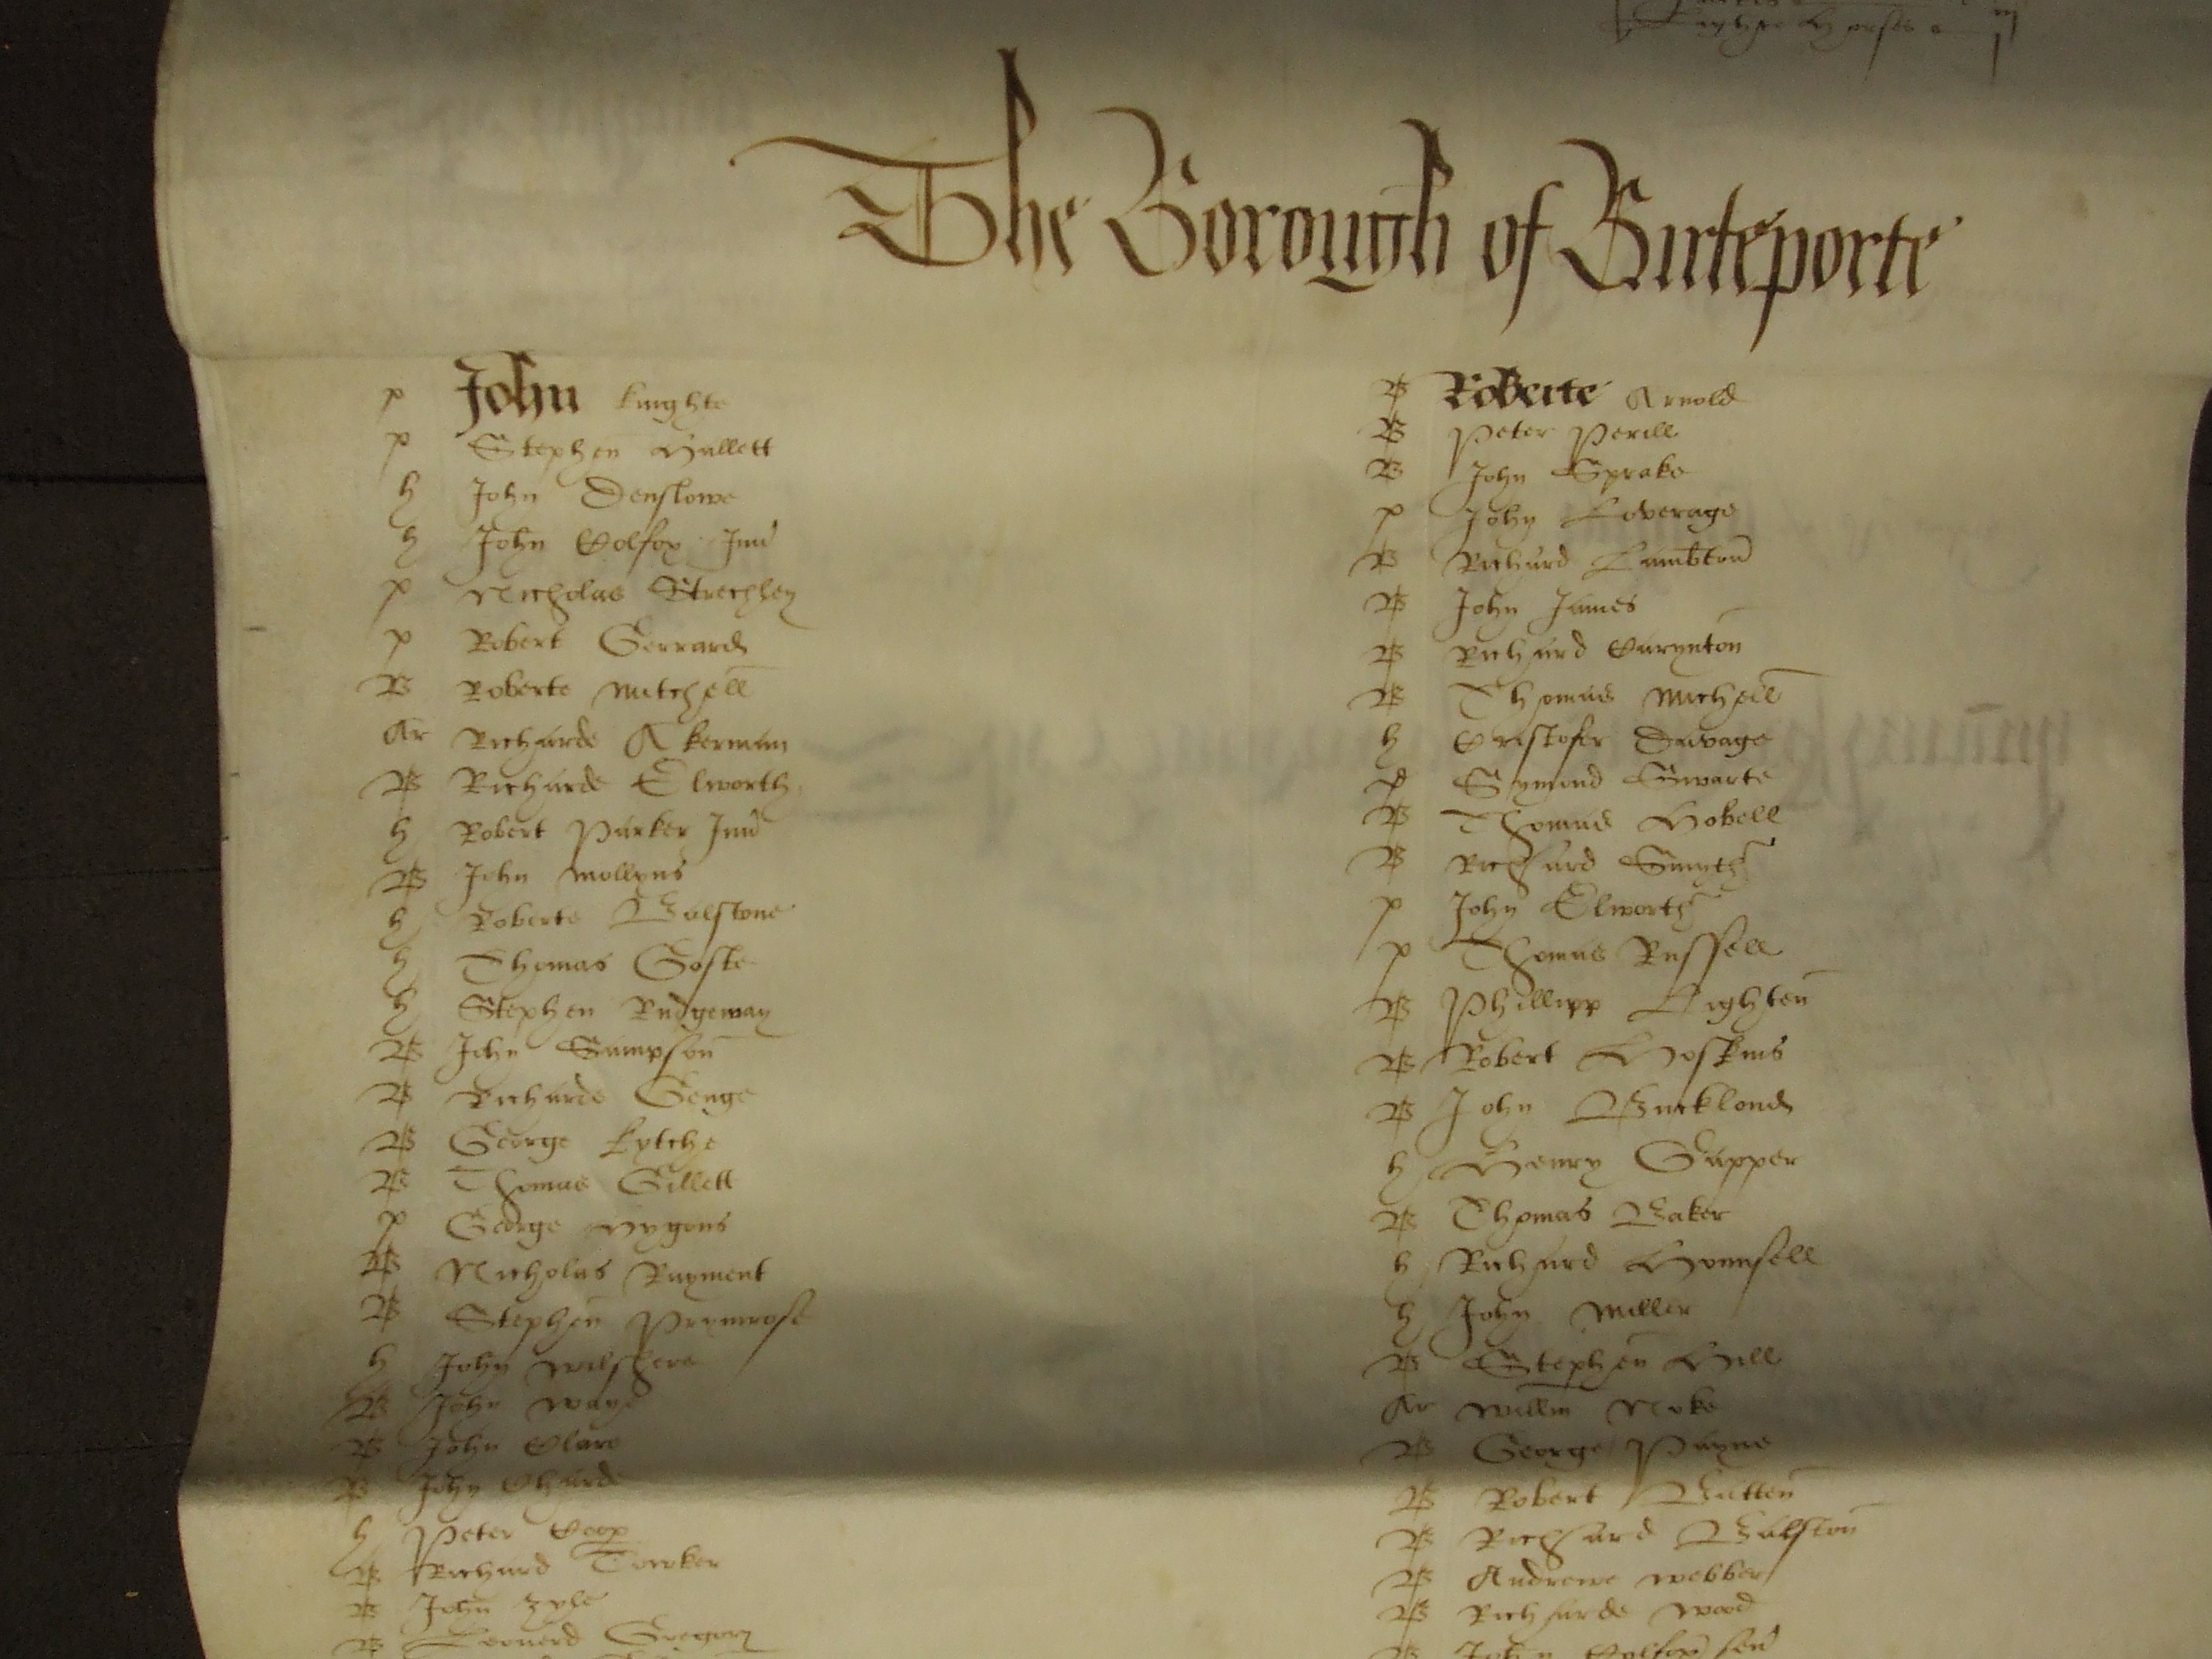 The Borough of Birteporte
p John Knighte
p Stephen Hallett
h John Denslowe
h John Colfox Jun
p Nicholas Strechley
p Robert Gerrard
B Roberte Mitchell
Ar Richarde Akerman
B Richarde Elworth
h Robert Parker Jun
B John Mollyns
h Roberte Balstone
h Thomas Goste
h Stephen Rudgeway
B John Sampson
B Richarde Genge
B George Kytche
B Thomas Gillett
p George Hygons
B Nicholas Rayment
B Stephen Prymrose
h John Wilshere
B John Waye
B John Clare
B John Charde
h Peter Coop
B Richard Towker
B John
B Leonerd Gregory
B Roberte Arnold
B Peter Perill
B John Sprake
p John Loverage
B Richard Lambton
B John James
B Richard Carynton
B Thomas Michell
h Cristofer Davage
p Symond Gwarte
B Thomas Hobell
B Richard Smyth
p John Elworth
p Thomas Russell
B Phillipp Lighten
B Robert Hoskins
B John Buckland
h Henry Sapper
B Thomas Baker
h Richard Hounsell
h John Miller
B Stephen Hill
Ar Willm Noke
B George Payne
B Robert Batten
B Richard Balston
B Andrewe Webber
B Richarde Wood
B John Colfox sen